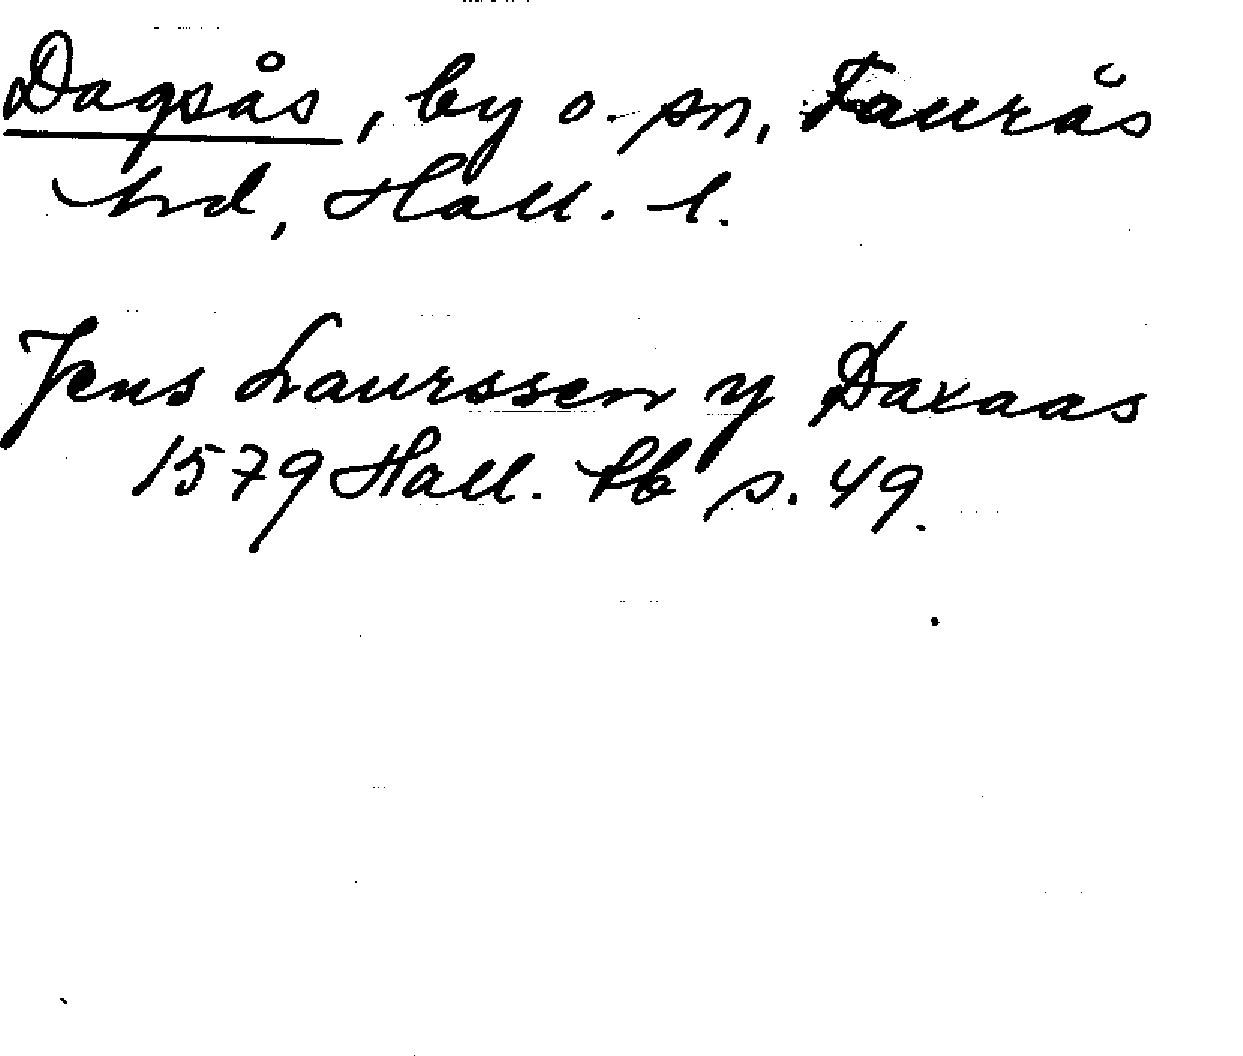 Dagsås, by o. sn, Faurås
hrd, Hall. l.
Jens Laurssen y Daxaas
1579 Hall. lb s. 49.